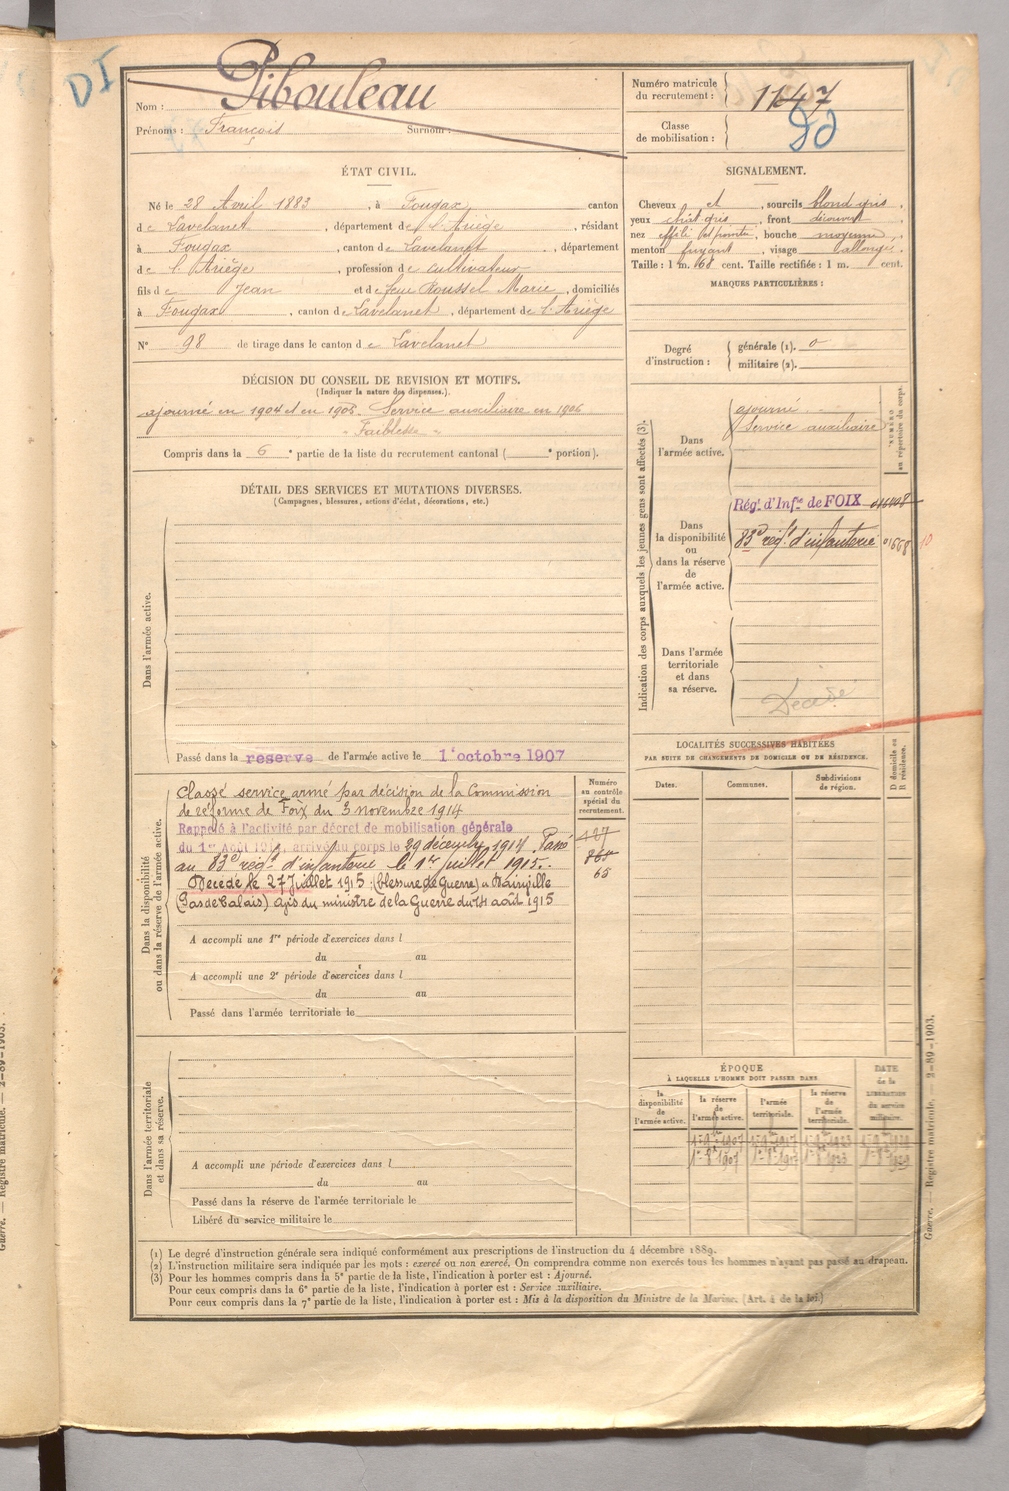 DI
Pibouleau
Nom :
Prénoms : François Surnom :
Numéro matricule du recrutement : 1147
Classe de mobilisation :
ÉTAT CIVIL.
Né le 28 Avril 1883, à Fougax canton
de Lavelanet, département de l'Ariège, résidant
à Fougax, canton de Lavelanet, département
de l'Ariège, profession de cultivateur
fils de Jean et de feue Roussel Marie, domiciliés
à Fougax, canton de Lavelanet, département de l'Ariège
N° 98 de tirage dans le canton de Lavelanet
DÉCISION DU CONSEIL DE REVISION ET MOTIFS.
(Indiquer la nature des dispenses.)
ajourné en 1904 et en 1905. Service auxiliaire en 1906
"Faiblesse"
Compris dans la 6e partie de la liste du recrutement cantonal ( e portion).
SIGNALEMENT.
Cheveux et, sourcils blond gris,
yeux chât gris, front découvert
nez effilé, bouche moyenne,
menton fuyant, visage allongé.
Taille : 1 m. 68 cent. Taille rectifiée : 1 m. cent.
MARQUES PARTICULIÈRES :
Degré d'instruction : générale (1). 0
militaire (2).
DÉTAIL DES SERVICES ET MUTATIONS DIVERSES.
(Campagnes, blessures, actions d'éclat, décorations, etc.)
Dans l'armée active.
Passé dans la reserve de l'armée active le 1er octobre 1907
Indication des corps auxquels les jeunes gens sont affectés (3).
NUMÉRO au répertoire du corps.
Dans l'armée active.
ajourné
Service auxiliaire
Dans la disponibilité ou dans la réserve de l'armée active.
Régt. d'Infie de FOIX
83e régt. d'infanterie
Dans l'armée territoriale et dans sa réserve.
Décédé
Dans la disponibilité ou dans la réserve de l'armée active.
Numéro au contrôle spécial du recrutement.
Classé service armé par décision de la Commission
de réforme de Foix du 3 novembre 1914
Rappelé à l'activité par décret de mobilisation générale
du 1er Août 1914, arrivé au corps le 29 décembre 1914. Passé
au 83e régt. d'infanterie le 1er juillet 1915.
Décédé le 27 Juillet 1915 (blessure de Guerre) a
(Pas de Calais) avis du ministre de la Guerre du 14 août 1915
65
A accompli une 1re période d'exercices dans l
du au
A accompli une 2e période d'exercices dans l
du au
Passé dans l'armée territoriale le
LOCALITÉS SUCCESSIVES HABITÉES
PAR SUITE DE CHANGEMENTS DE DOMICILE OU DE RÉSIDENCE.
Dates. Communes. Subdivisions de région.
D domicile ou R résidence.
Dans l'armée territoriale et dans sa réserve.
A accompli une période d'exercices dans l
du au
Passé dans la réserve de l'armée territoriale le
Libéré du service militaire le
ÉPOQUE
À LAQUELLE L'HOMME DOIT PASSER DANS
la disponibilité de l'armée active. la réserve de l'armée active. l'armée territoriale. la réserve de l'armée territoriale.
DATE de la LIBÉRATION du service militaire.
(1) Le degré d'instruction générale sera indiqué conformément aux prescriptions de l'instruction du 4 décembre 1889.
(2) L'instruction militaire sera indiquée par les mots : exercé ou non exercé. On comprendra comme non exercés tous les hommes n'ayant pas passé au drapeau.
(3) Pour les hommes compris dans la 5e partie de la liste, l'indication à porter est : Ajourné.
Pour ceux compris dans la 6e partie de la liste, l'indication à porter est : Service auxiliaire.
Pour ceux compris dans la 7e partie de la liste, l'indication à porter est : Mis à la disposition du Ministre de la Marine. (Art. 4 de la loi.)
Guerre. — Registre matricule. — 2-89-1903.